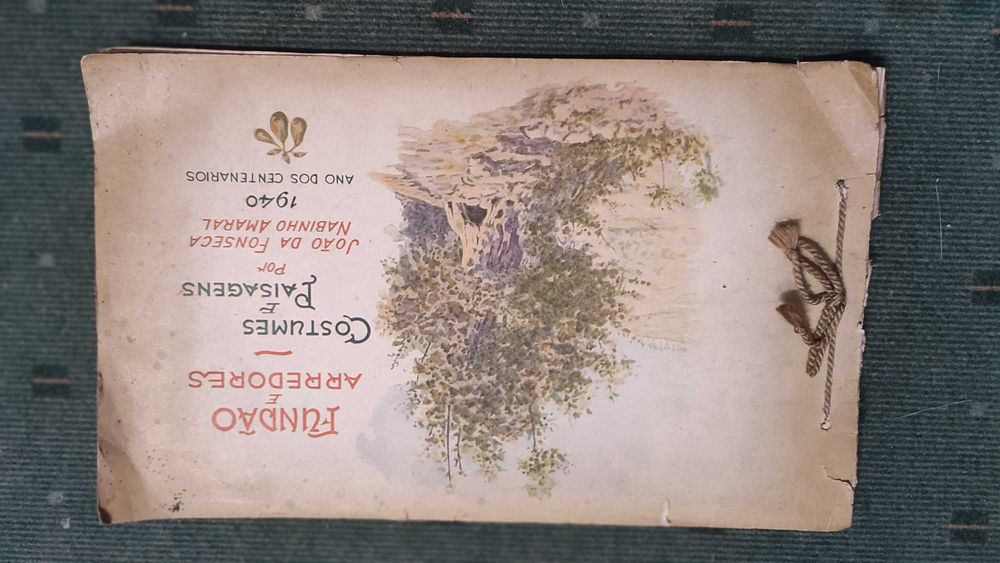 FUNDÃO
E
ARREDORES
COSTUMES
E
PAISAGENS
POR
JOÃO DA FONSECA
NABINHO AMARAL
1940
ANO DOS CENTENARIOS